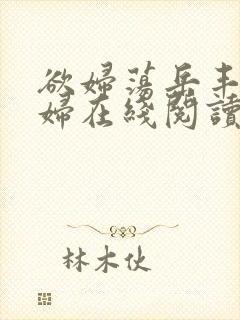 欲婦蕩岳丰
婦在綫閱讀
林木伙